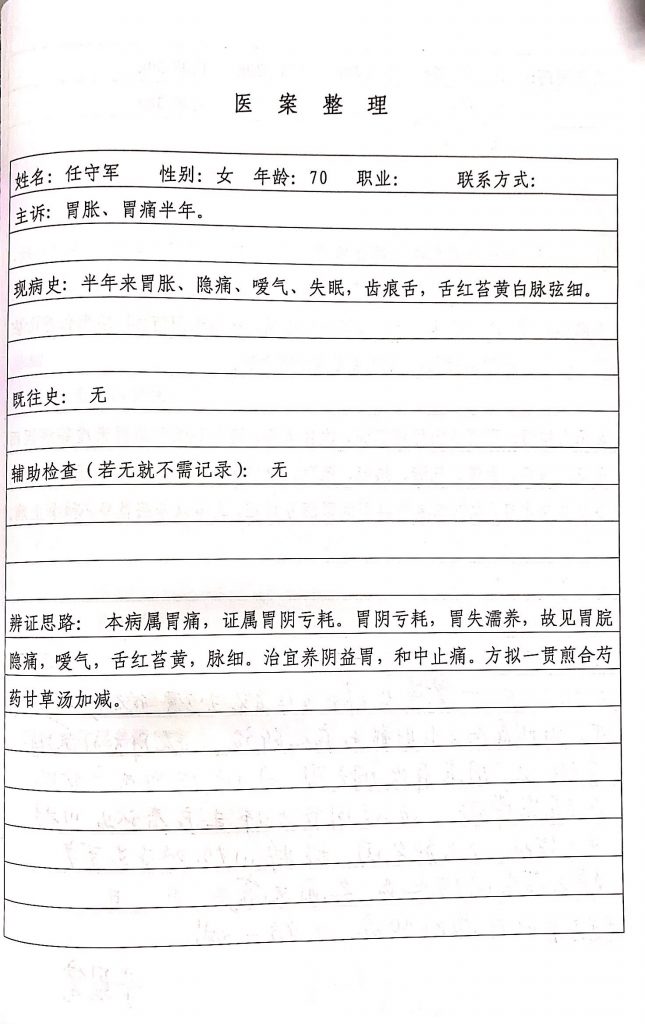 医案整理
姓名：任守军 性别：女 年龄：70 职业： 联系方式：
主诉：胃胀、胃痛半年。
现病史：半年来胃胀、隐痛、嗳气、失眠，齿痕舌，舌红苔黄白脉弦细。
既往史： 无
辅助检查（若无就不需记录）： 无
辨证思路： 本病属胃痛，证属胃阴亏耗。胃阴亏耗，胃失濡养，故见胃脘
隐痛，嗳气，舌红苔黄，脉细。治宜养阴益胃，和中止痛。方拟一贯煎合芍
药甘草汤加减。